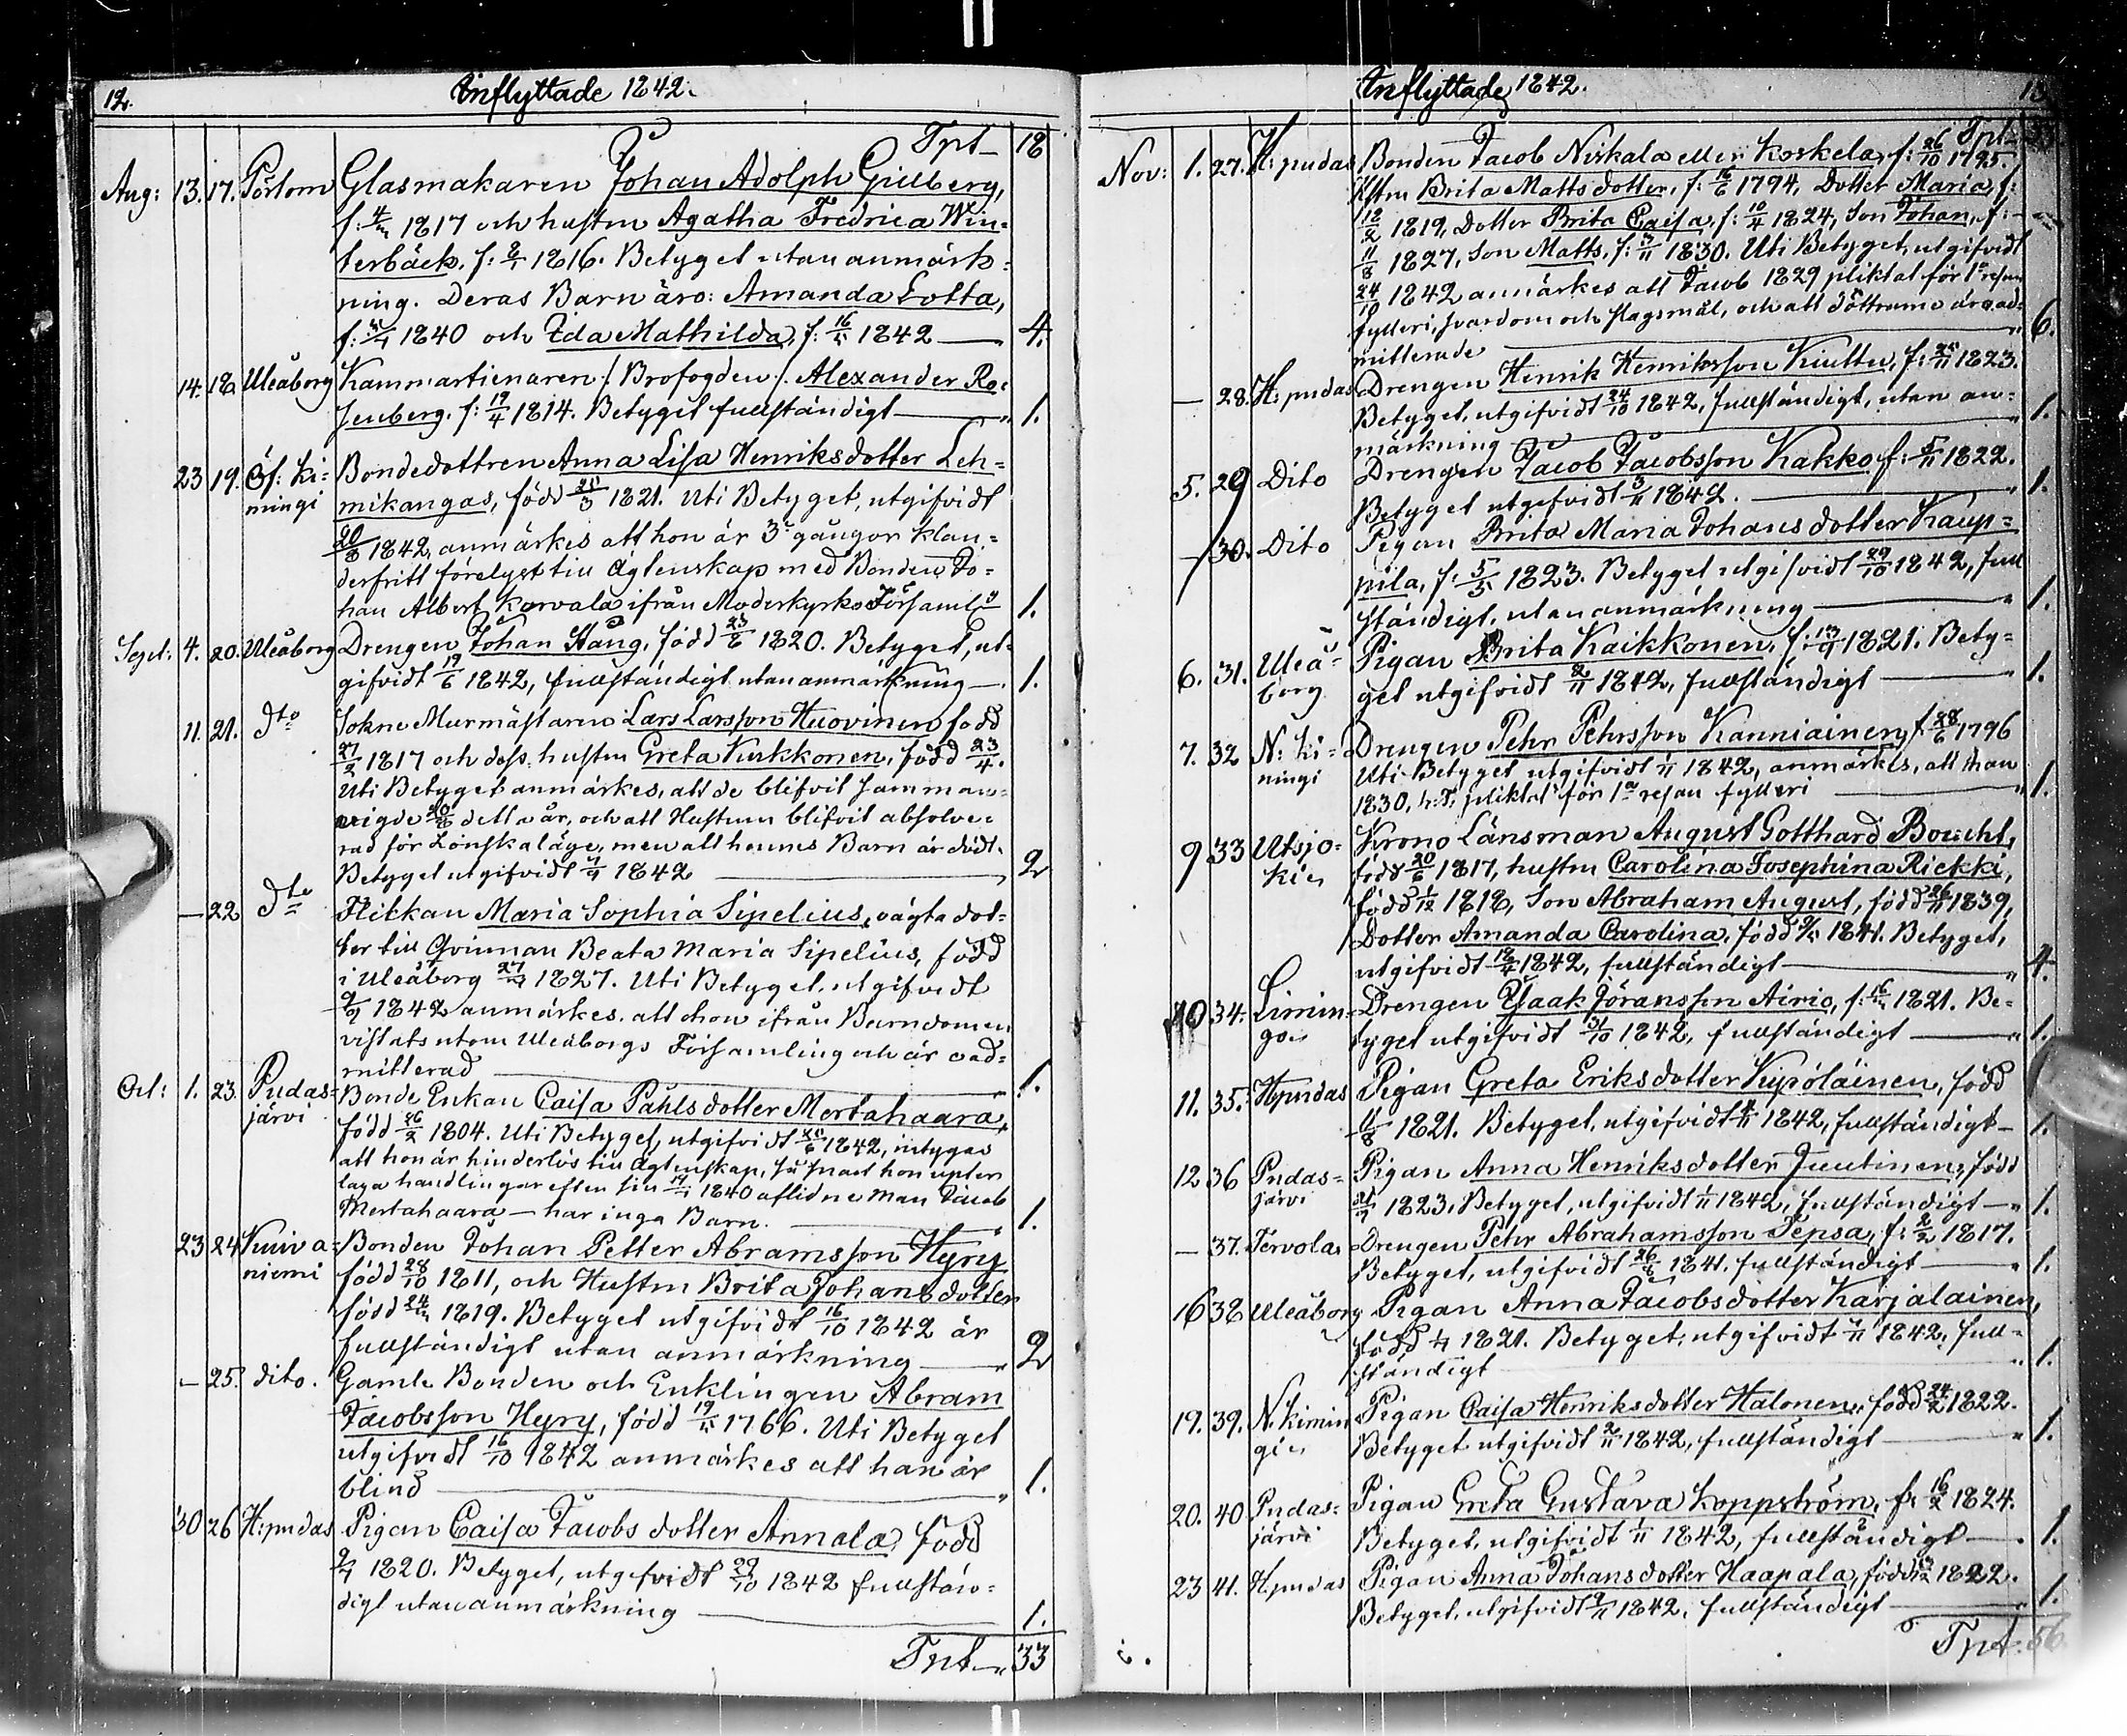 12. Inflyttade 1842.
Tpt 18
Aug: 13. 17. Pörtom Glasmakaren Johan Adolph Gillberg,
f: 1817 och hustru Agatha Fredrica Win-
terbäck, f: 8/1 1816. Betyget utan anmärk-
ning. Deras Barn äro: Amanda Lotta,
f: 1840 och Ida Mathilda, f: 1842 — 4.
14. 18. Uleåborg Kammartienaren /: Brofogden :/ Alexander Ro-
senberg, f: 19/4 1814. Betyget fullständigt — 1.
23 19. Öf: Ki- Bondedottren Anna Lisa Henriksdotter Leh-
mingi mikangas, född 1821. Uti Betyget, utgifvidt
20/8 1842, anmärkes att hon är 3e gångor klan-
derfritt förelyst till Äglenskap med Bonden Jo-
han Albert Karvala ifrån Moderkyrko Församl: 1.
Sept: 4. 20. Uleåborg Drengen Johan Stång, född 1820. Betyget, ut-
gifvidt 19/6 1842, fullständigt utan anmärkning — 1.
11. 21. Dto Sokne Murmästaren Lars Larsson Huovinen född
27/2 1817 och dess hustru Greta Kukkonen, född 23/4.
Uti Betyget anmärkes, att de blifvit samman-
vigde detta år, och att Hustrun blifvit absolve-
rad för Lönskaläge, men att hennes Barn är dödt.
Betyget utgifvidt 1842 — 2
— 22 Dto Flickan Maria Sophia Sipelius, oägta dot-
ter till Qvinnan Beata Maria Sipelius, född
i Uleåborg 1827. Uti Betyget, utgifvidt
1842 anmärkes, att hon ifrån Barndomen
vistats utom Uleåborgs Församling och är oad-
mitterad — 1.
Oct: 1. 23. Pudas- Bonde Enkan Caisa Påhlsdotter Mertahaara,
järvi född 26/2 1804. Uti Betyget, utgifvidt 1842, intygas
att hon är hinderlös till Äglenskap, så snart hon upter
laga handlingar efter sin 1840 aflidne man Jacob
Mertahaara — har inga Barn. — 1.
23 24 Kuiva- Bonden Johan Petter Abramsson Hyry
niemi född 28/10 1811, och Hustru Brita Johansdotter
född 1819. Betyget utgifvidt 16/10 1842 är
fullständigt utan anmärkning — 2
— 25. dito. Gamle Bonden och Enklingen Abram
Jacobsson Hyry, född 1766. Uti Betyget
utgifvidt 16/10 1842 anmärkes att han är
blind — 1.
30 26 H:pudas Pigan Caisa Jacobsdotter Annala, född
1820. Betyget, utgifvidt 29/10 1842 fullstän-
digt utan anmärkning — 1.
Tpt 33
Inflyttade 1842. 13
Tpt 33
Nov: 1. 27. H:pudas Bonden Jacob Niskala eller Koskela, f: 26/10 1795.
Hstru Brita Mattsdotter, f: 16/6 1794, Dotter Maria, f:
12/2 1819, Dotter Brita Caisa, f: 10/4 1824, Son Johan, f:
11/8 1827, Son Matts, f: 1830. Uti Betyget, utgifvidt
24/10 1842 anmärkes att Jacob 1829 pliktat för 1a resan
fylleri, svordom och slagsmål, och att döttrarne äro ad-
mitterade — 6.
— 28. H:pudas Drengen Henrik Henriksson Kiuttu, f: 1823.
Betyget, utgifvidt 24/10 1842, fullständigt, utan an-
märkning — 1.
5. 29 Dito Drengen Jacob Jacobsson Kakko f: 5/11 1822.
Betyget utgifvidt 3/11 1842. — 1.
— 30. Dito Pigan Brita Maria Johansdotter Kaup-
pila, f: 5/5 1823. Betyget utgifvidt 29/10 1842, full
ständigt, utan anmärkning — 1.
6. 31. Uleå- Pigan Brita Kaikkonen, f: 1821. Bety-
borg get utgifvidt 2/11 1842, fullständigt — 1.
7. 32 N: Ki- Drengen Pehr Pehrsson Kanniainen, f 28/6 1796
mingi Uti Betyget utgifvidt 1842, anmärkes, att han
1830, h.T. pliktat för 1a resan fylleri — 1.
9 33 Utsjo- Krono Länsman August Gotthard Boucht,
ki född 20/6 1817, hustru Carolina Josephina Riekki,
född 1/12 1818, Son Abraham August, född 26/11 1839,
Dotter Amanda Carolina, född 1841. Betyget,
utgifvidt 1842, fullständigt — 4.
10 34. Limin- Drengen Isaak Jöransson Airio, f: 1821. Be-
go tyget utgifvidt 31/10 1842, fullständigt — 1.
11. 35. H:pudas Pigan Greta Eriksdotter Kypöläinen, född
1821. Betyget, utgifvidt 1842, fullständigt — 1.
12 36 Pudas- Pigan Anna Henriksdotter Juutinen, född
järvi 1823. Betyget, utgifvidt 1842, fullständigt — 1.
— 37. Tervola Drengen Pehr Abrahamsson Tepsa, f: 2/2 1817.
Betyget, utgifvidt 26/8 1841. fullständigt — 1.
16 38 Uleåborg Pigan Anna Jacobsdotter Karjalainen,
född 1821. Betyget, utgifvidt 1842, full-
ständigt — 1.
19. 39. N. Kimin Pigan Caisa Henriksdotter Halonen, född 24/2 1822.
gi Betyget utgifvidt 2/11 1842, fullständigt — 1.
20. 40 Pudas- Pigan Greta Gustava Koppström, f: 16/2 1824.
järvi Betyget, utgifvidt 1842, fullständigt — 1.
23 41. H:pudas Pigan Anna Johansdotter Haapala, född 1822.
Betyget, utgifvidt 1842, fullständigt — 1.
Tpt: 56.